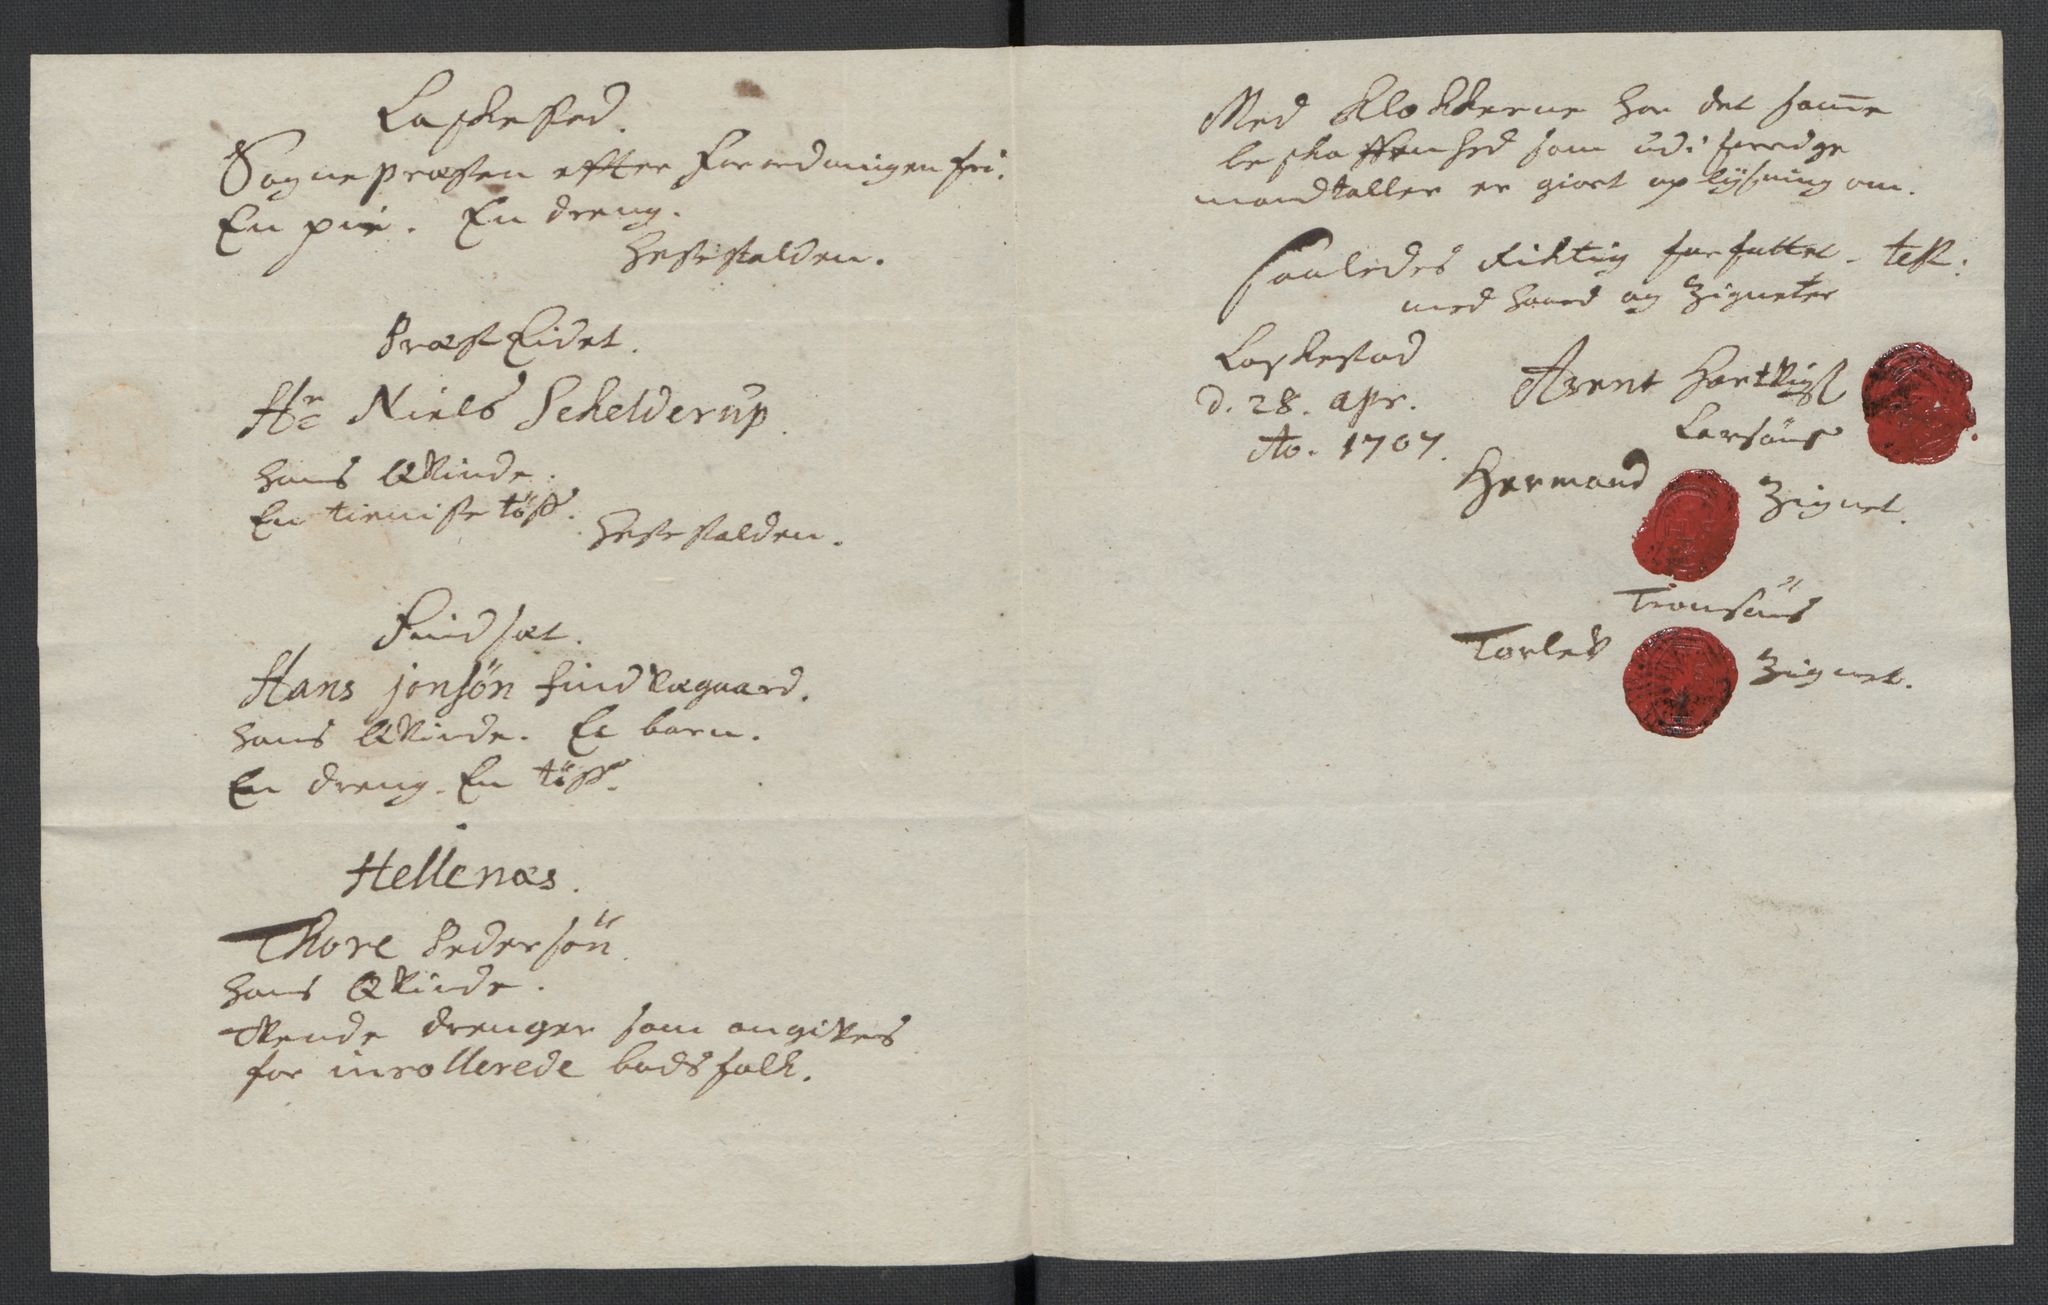 Laskested.
Sognepræsten efter Forordningen fri.
En pie. En dreng.
Hestestalden.
Præst Eidet.
Hr Niels Schelderup.
hans Qvinde.
En tieniste töss.
Hestestalden.
Findsæt.
Hans jonsön Findvægaard.
hans Qvinde. Et barn.
En dreng. En töss.
Hellenæs.
Thore Pedersön.
hans Qvinde.
Tvende drenger som angives
for inrollerede baadsfolk.
Med Klokkerne har det samme
beskaffenhed som udi forrige
mandtaller er giort oplysning om.
Saaledes rigtig forfattet. test:
med haand og Zigneter
Laskestad
d. 28. apr.
Ao. 1707.
Arent Hartvigs
Larsöns
Hermand Zignet.
Tronsöns
Torlev Zignet.